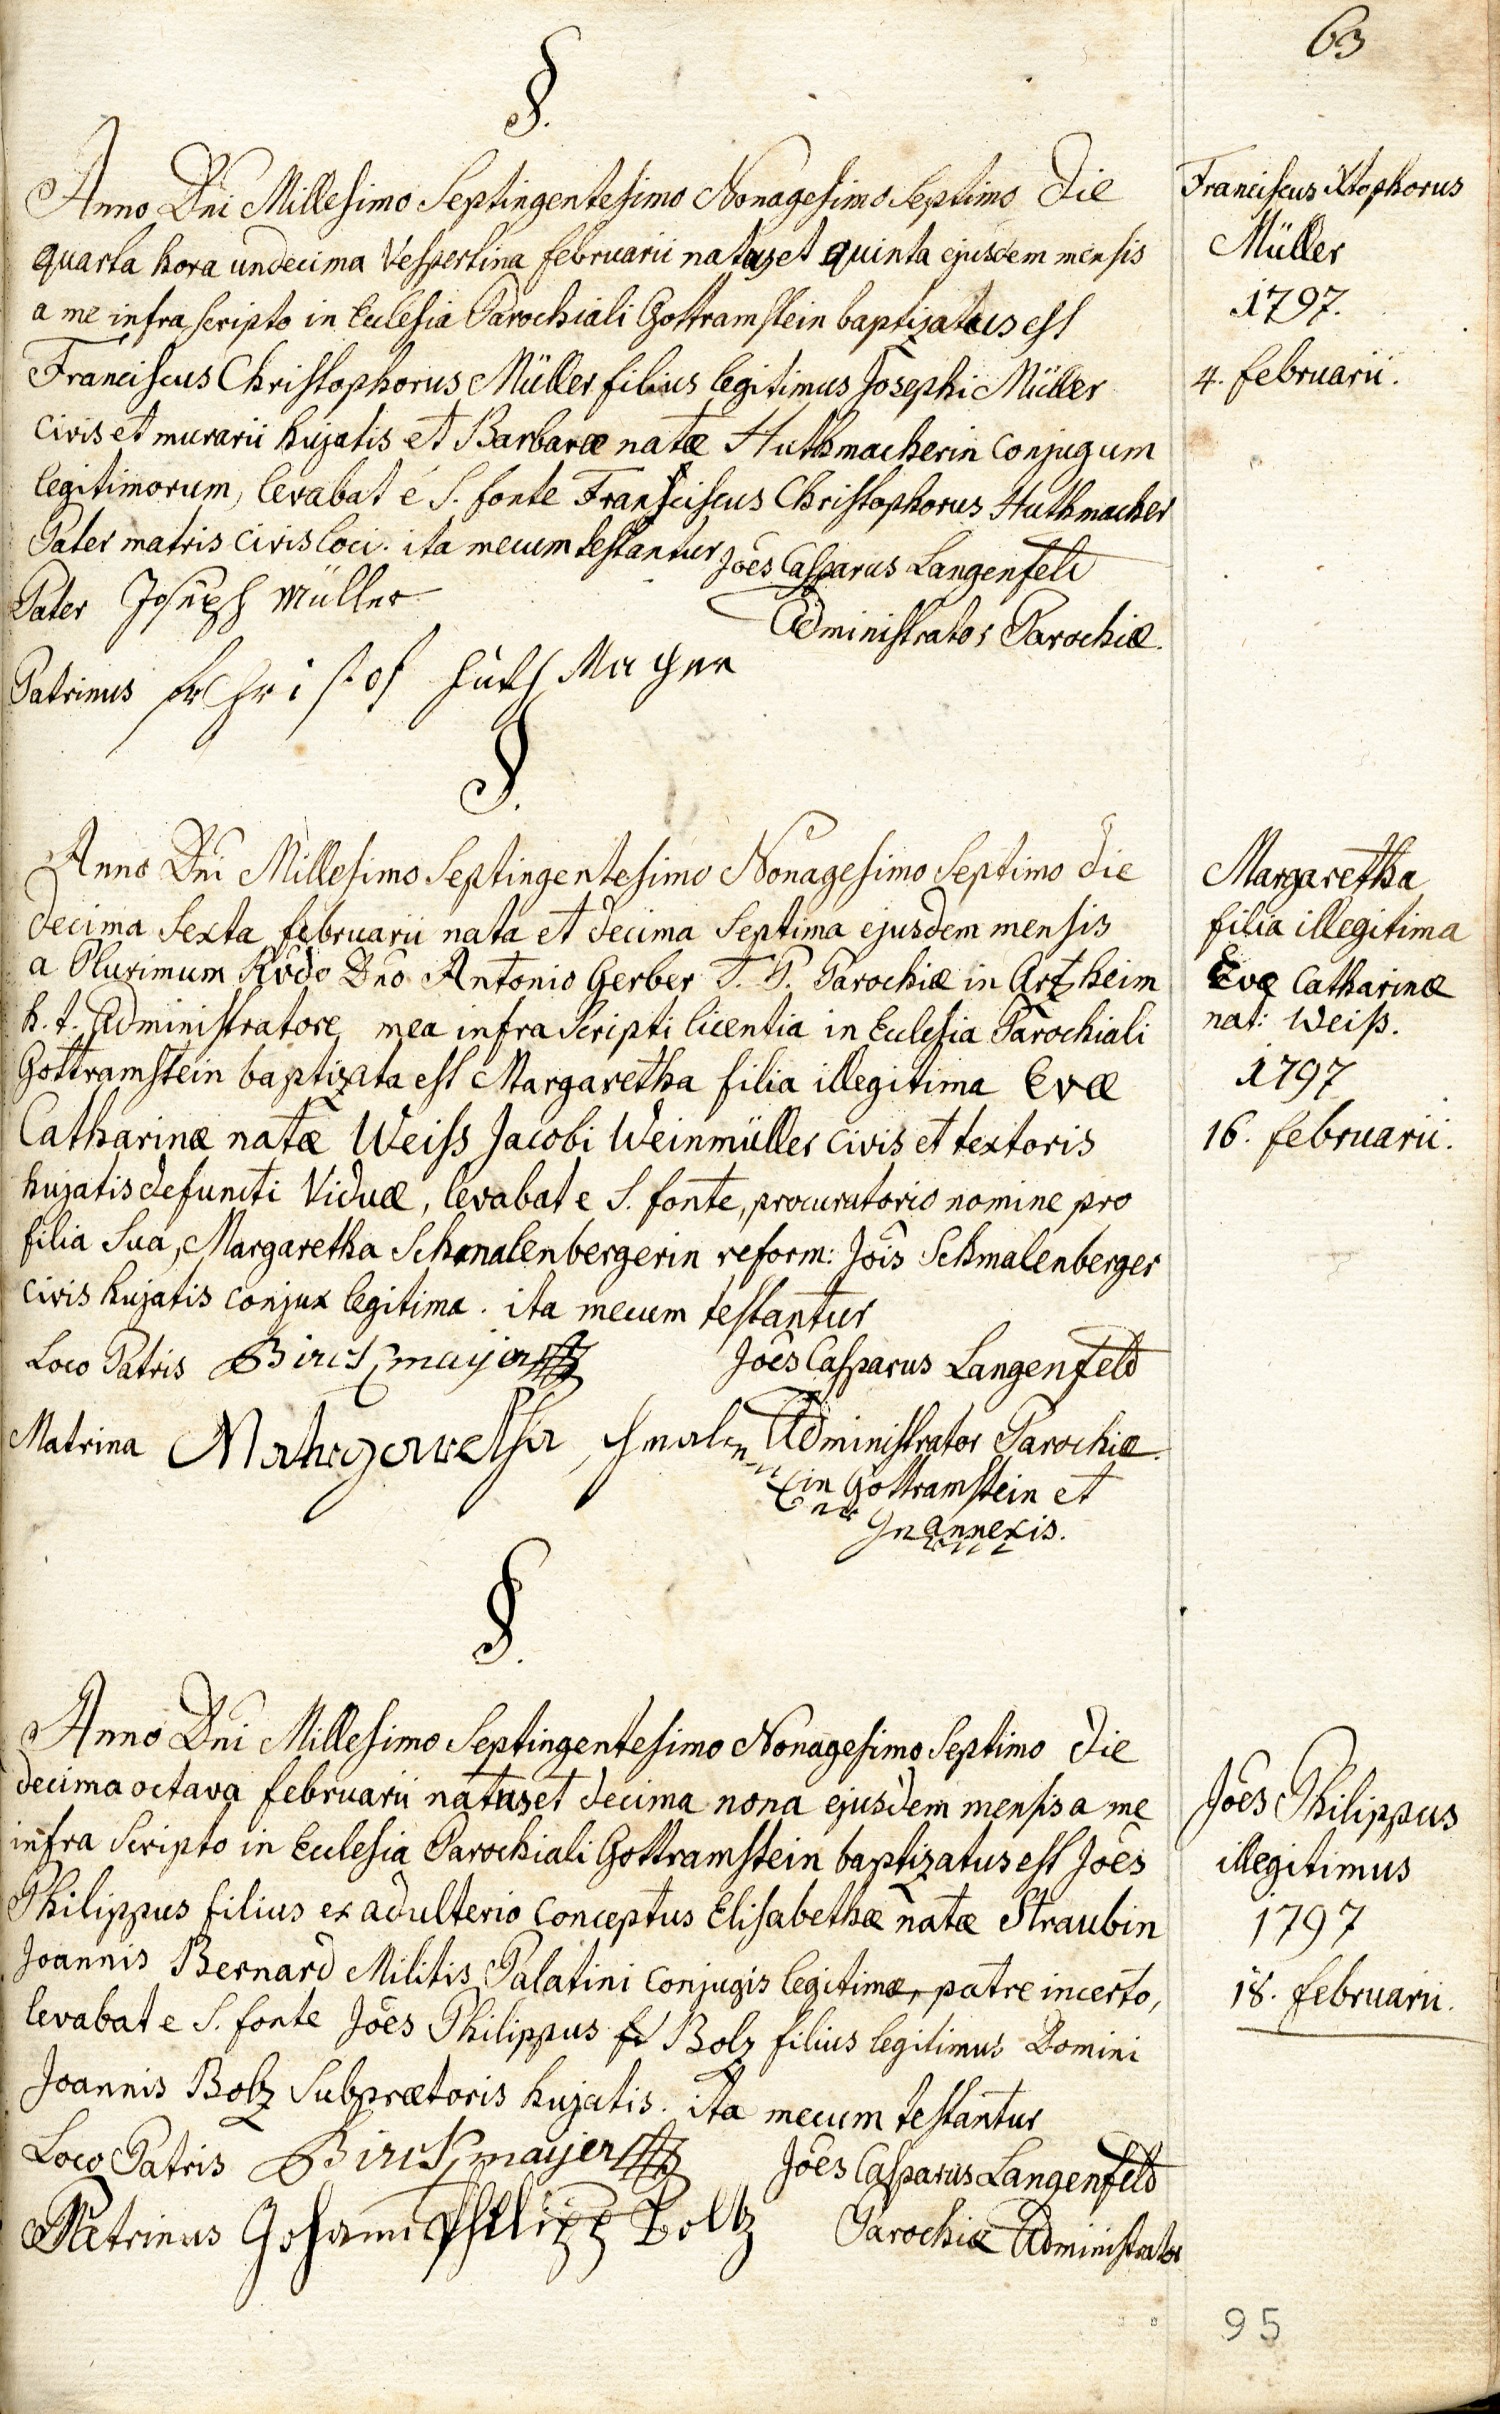 63
§.
Anno Dni Millesimo Septingentesimo Nonagesimo Septimo die
quarta hora undecima Vespertina februarii natus et quinta ejusdem mensis
a me infra scripto in Ecclesia Parochiali Gottramstein baptizatus est
Franciscus Christophorus Müller filius legitimus Josephi Müller
civis et murarii hujatis et Barbaræ natæ Huthmacherin conjugum
legitimorum, levabat é S. fonte Franciscus Christophorus Huthmacher
Pater matris civis loci. ita mecum testantur
Joês Casparus Langenfeld
Administrator Parochiæ.
Pater Joseph Müller
Patrinus
Franciscus Xtophorus
Müller
1797.
4. februarii.
§.
Anno Dni Millesimo Septingentesimo Nonagesimo Septimo die
decima Sexta februarii nata et decima Septima ejusdem mensis
a Plurimum Rvdo Dno Antonio Gerber T. P. Parochiæ in Artzheim
h. t. Administratore mea infra Scripti licentia in Ecclesia Parochiali
Gottramstein baptizata est Margaretha filia illegitima Evæ
Catharinæ natæ Weiss Jacobi Weinmüller civis et textoris
hujatis defuncti Viduæ, levabat e S. fonte, procuratorio nomine pro
filia Sua, Margaretha Schmalenbergerin reform: Jois Schmalenberger
civis hujatis conjux legitima. ita mecum testantur
Loco Patris Birckmaijer
Joês Casparus Langenfeld
Matrina Mahrgaretha
Administrator Parochiæ
in Gottramstein et
In annexis.
Margaretha
filia illegitima
Evæ Catharinæ
nat: Weiß.
1797
16. februarii.
§.
Anno Dni Millesimo Septingentesimo Nonagesimo Septimo die
decima octava februarii natus et decima nona ejusdem mensis a me
infra Scripto in Ecclesia Parochiali Gottramstein baptizatus est Joês
Philippus filius ex adulterio conceptus Elisabethæ natæ Straubin
Joannis Bernard Militis Palatini conjugis legitimæ, patre incerto,
levabat e S. fonte Joês Philippus Bolz filius legitimus Domini
Joannis Bolz Subprætoris hujatis. ita mecum testantur
Loco Patris Birckmaijer
Joês Casparus Langenfeld
Patrinus Johann Philipp Boltz
Parochiæ Administrator
Joês Philippus
illegitimus
1797
18. februarii.
95